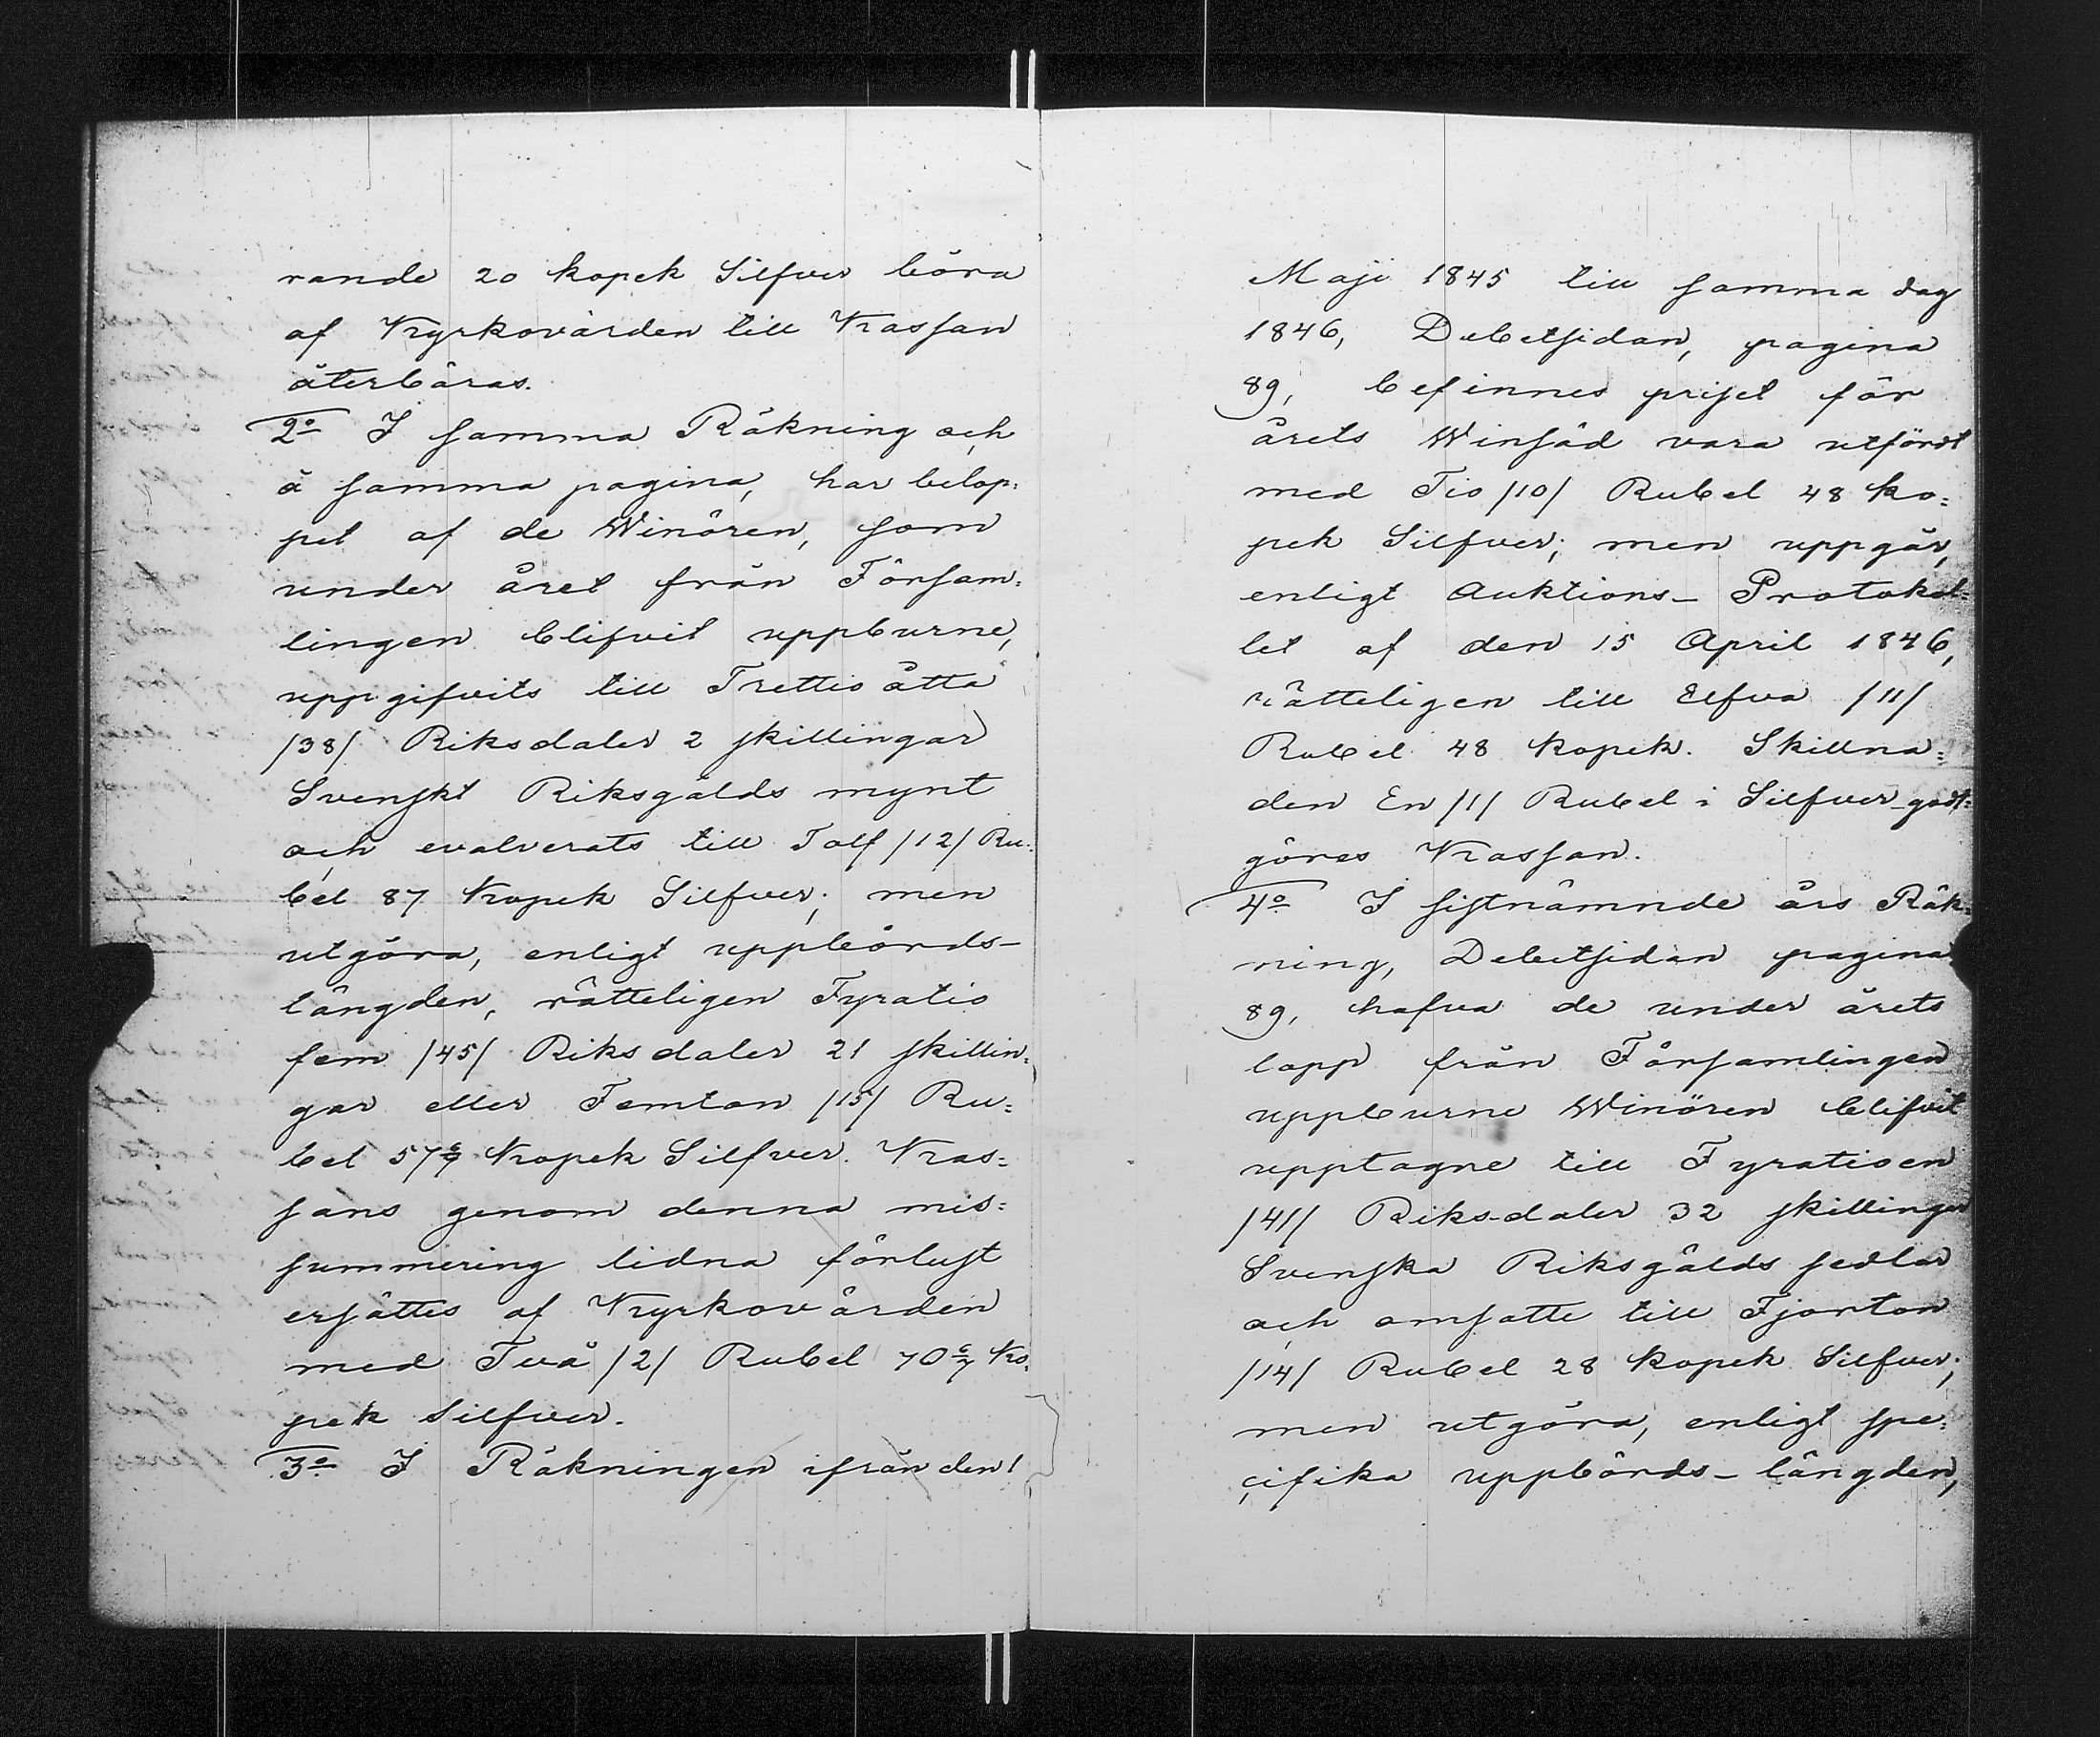 rande 20 kopek Silfver böra
af Kyrkovärden till Kassan
återbäras.
2o I samma Räkning och
å samma pagina, har belop=
pet af de Winören, som
under året från Försam=
lingen blifvit uppburne,
uppgifvits till Trettio åtta
/38/ Riksdaler 2 skillingar
Svenskt Riksgälds mynt
och evalverats till Tolf /12/ Ru=
bel 87 Kopek Silfver; men
utgöra, enligt uppbörds-
längden, rätteligen Fyratio
fem /45/ Riksdaler 21 skillin=
gar eller Femton /15/ Ru=
bel 57 6/7 Kopek Silfver. Kas=
sans genom denna mis=
summering lidna förlust
ersättes af Kyrkovärden
med Två /2/ Rubel 70 6/7 Ko=
pek Silfver.
3o I Räkningen ifrån den 1
Maji 1845 till samma dag
1846, Debetsidan, pagina
89, befinnes priset för
årets Winsäd vara utfördt
med Tio /10/ Rubel 48 ko=
pek Silfver; men uppgår,
enligt Auktions-Protokol=
let af den 15 April 1846,
rätteligen till Elfva /11/
Rubel 48 kopek. Skillna=
den En /1/ Rubel i Silfver godt=
göres Kassan.
4o I sistnämnde års Räk=
ning, Debetsidan pagina
89, hafva de under årets
lopp från Församlingen
uppburne Winören blifvit
upptagne till Fyratioen
/41/ Riksdaler 32 skillingar
Svenska Riksgälds sedlar
och omsatte till Fjorton
/14/ Rubel 28 kopek Silfver;
men utgöra, enligt spe=
cifika uppbörds-längden,